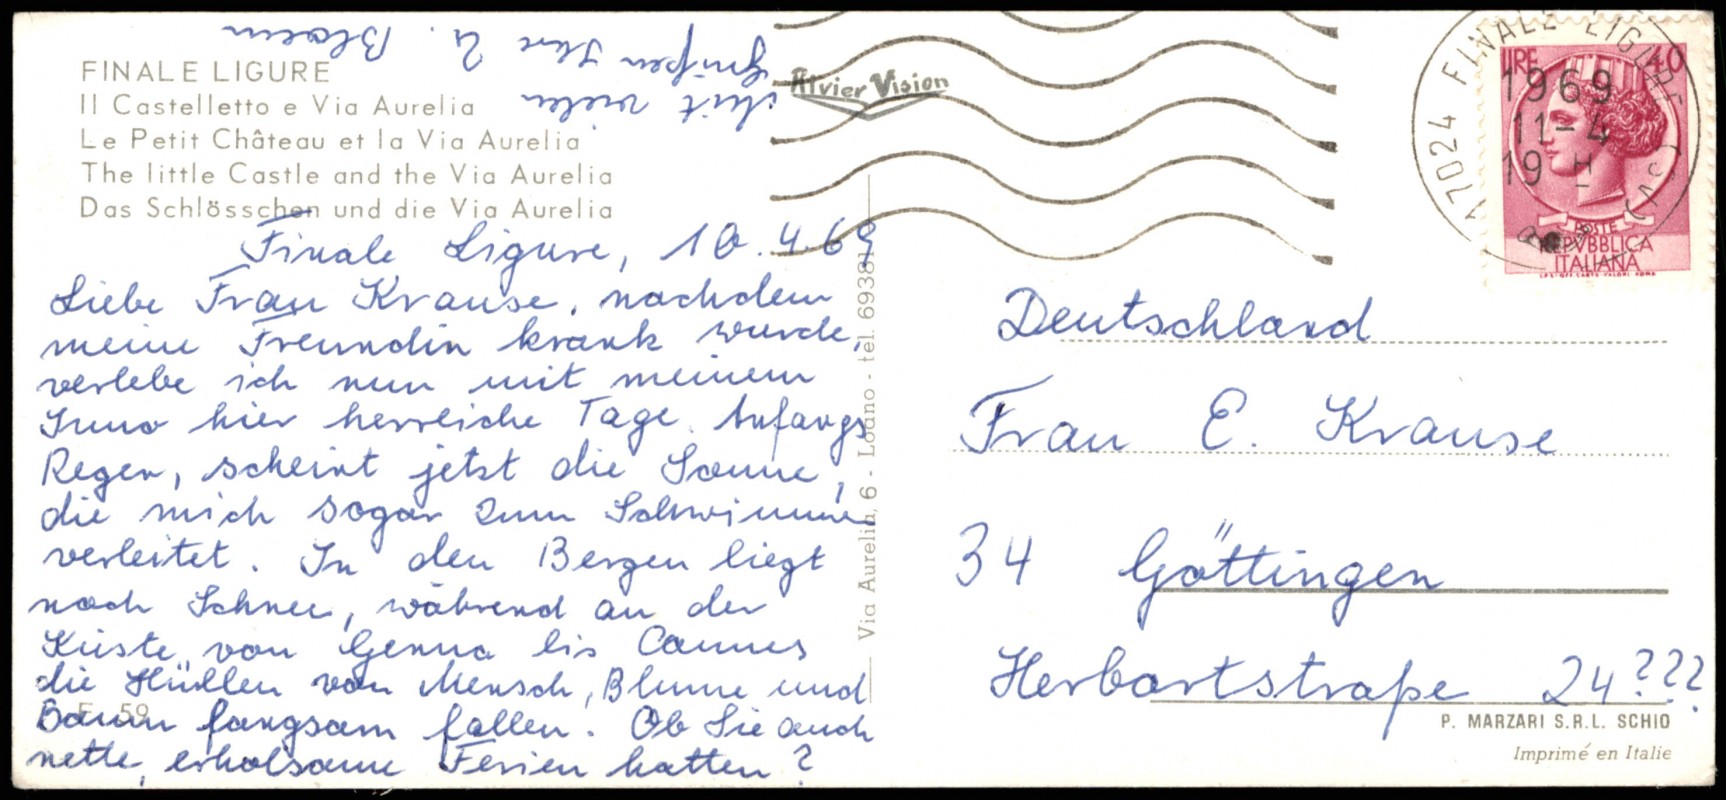 FINALE LIGURE
Il Castelletto e Via Aurelia
Le Petit Château et la Via Aurelia
The little Castle and the Via Aurelia
Das Schlösschen und die Via Aurelia
Finale Ligure, 10.4.69
Liebe Frau Krause, nachdem
meine Freundin krank wurde,
verlebe ich nun mit meinem
hier herrliche Tage. Anfangs
Regen, scheint jetzt die Sonne,
die mich sogar zum Schwimmen
verleitet. In den Bergen liegt
noch Schnee, während an der
Küste von Genua bis Cannes
die Hüllen von Mensch, Blume und
Baum langsam fallen. Ob Sie auch
nette, erholsame Ferien hatten?
Mit vielen
Grüßen Ihre U.
F. 59
Via Aurelia, 6 - Loano - tel. 69381
Rivier Vision
17024 FINALE LIGURE (SV)
1969
11-4
19 H
LIRE 40
POSTE
REPVBBLICA
ITALIANA
Deutschland
Frau E. Krause
34 Göttingen
Herbartstraße 24???
P. MARZARI S.R.L. SCHIO
Imprimé en Italie